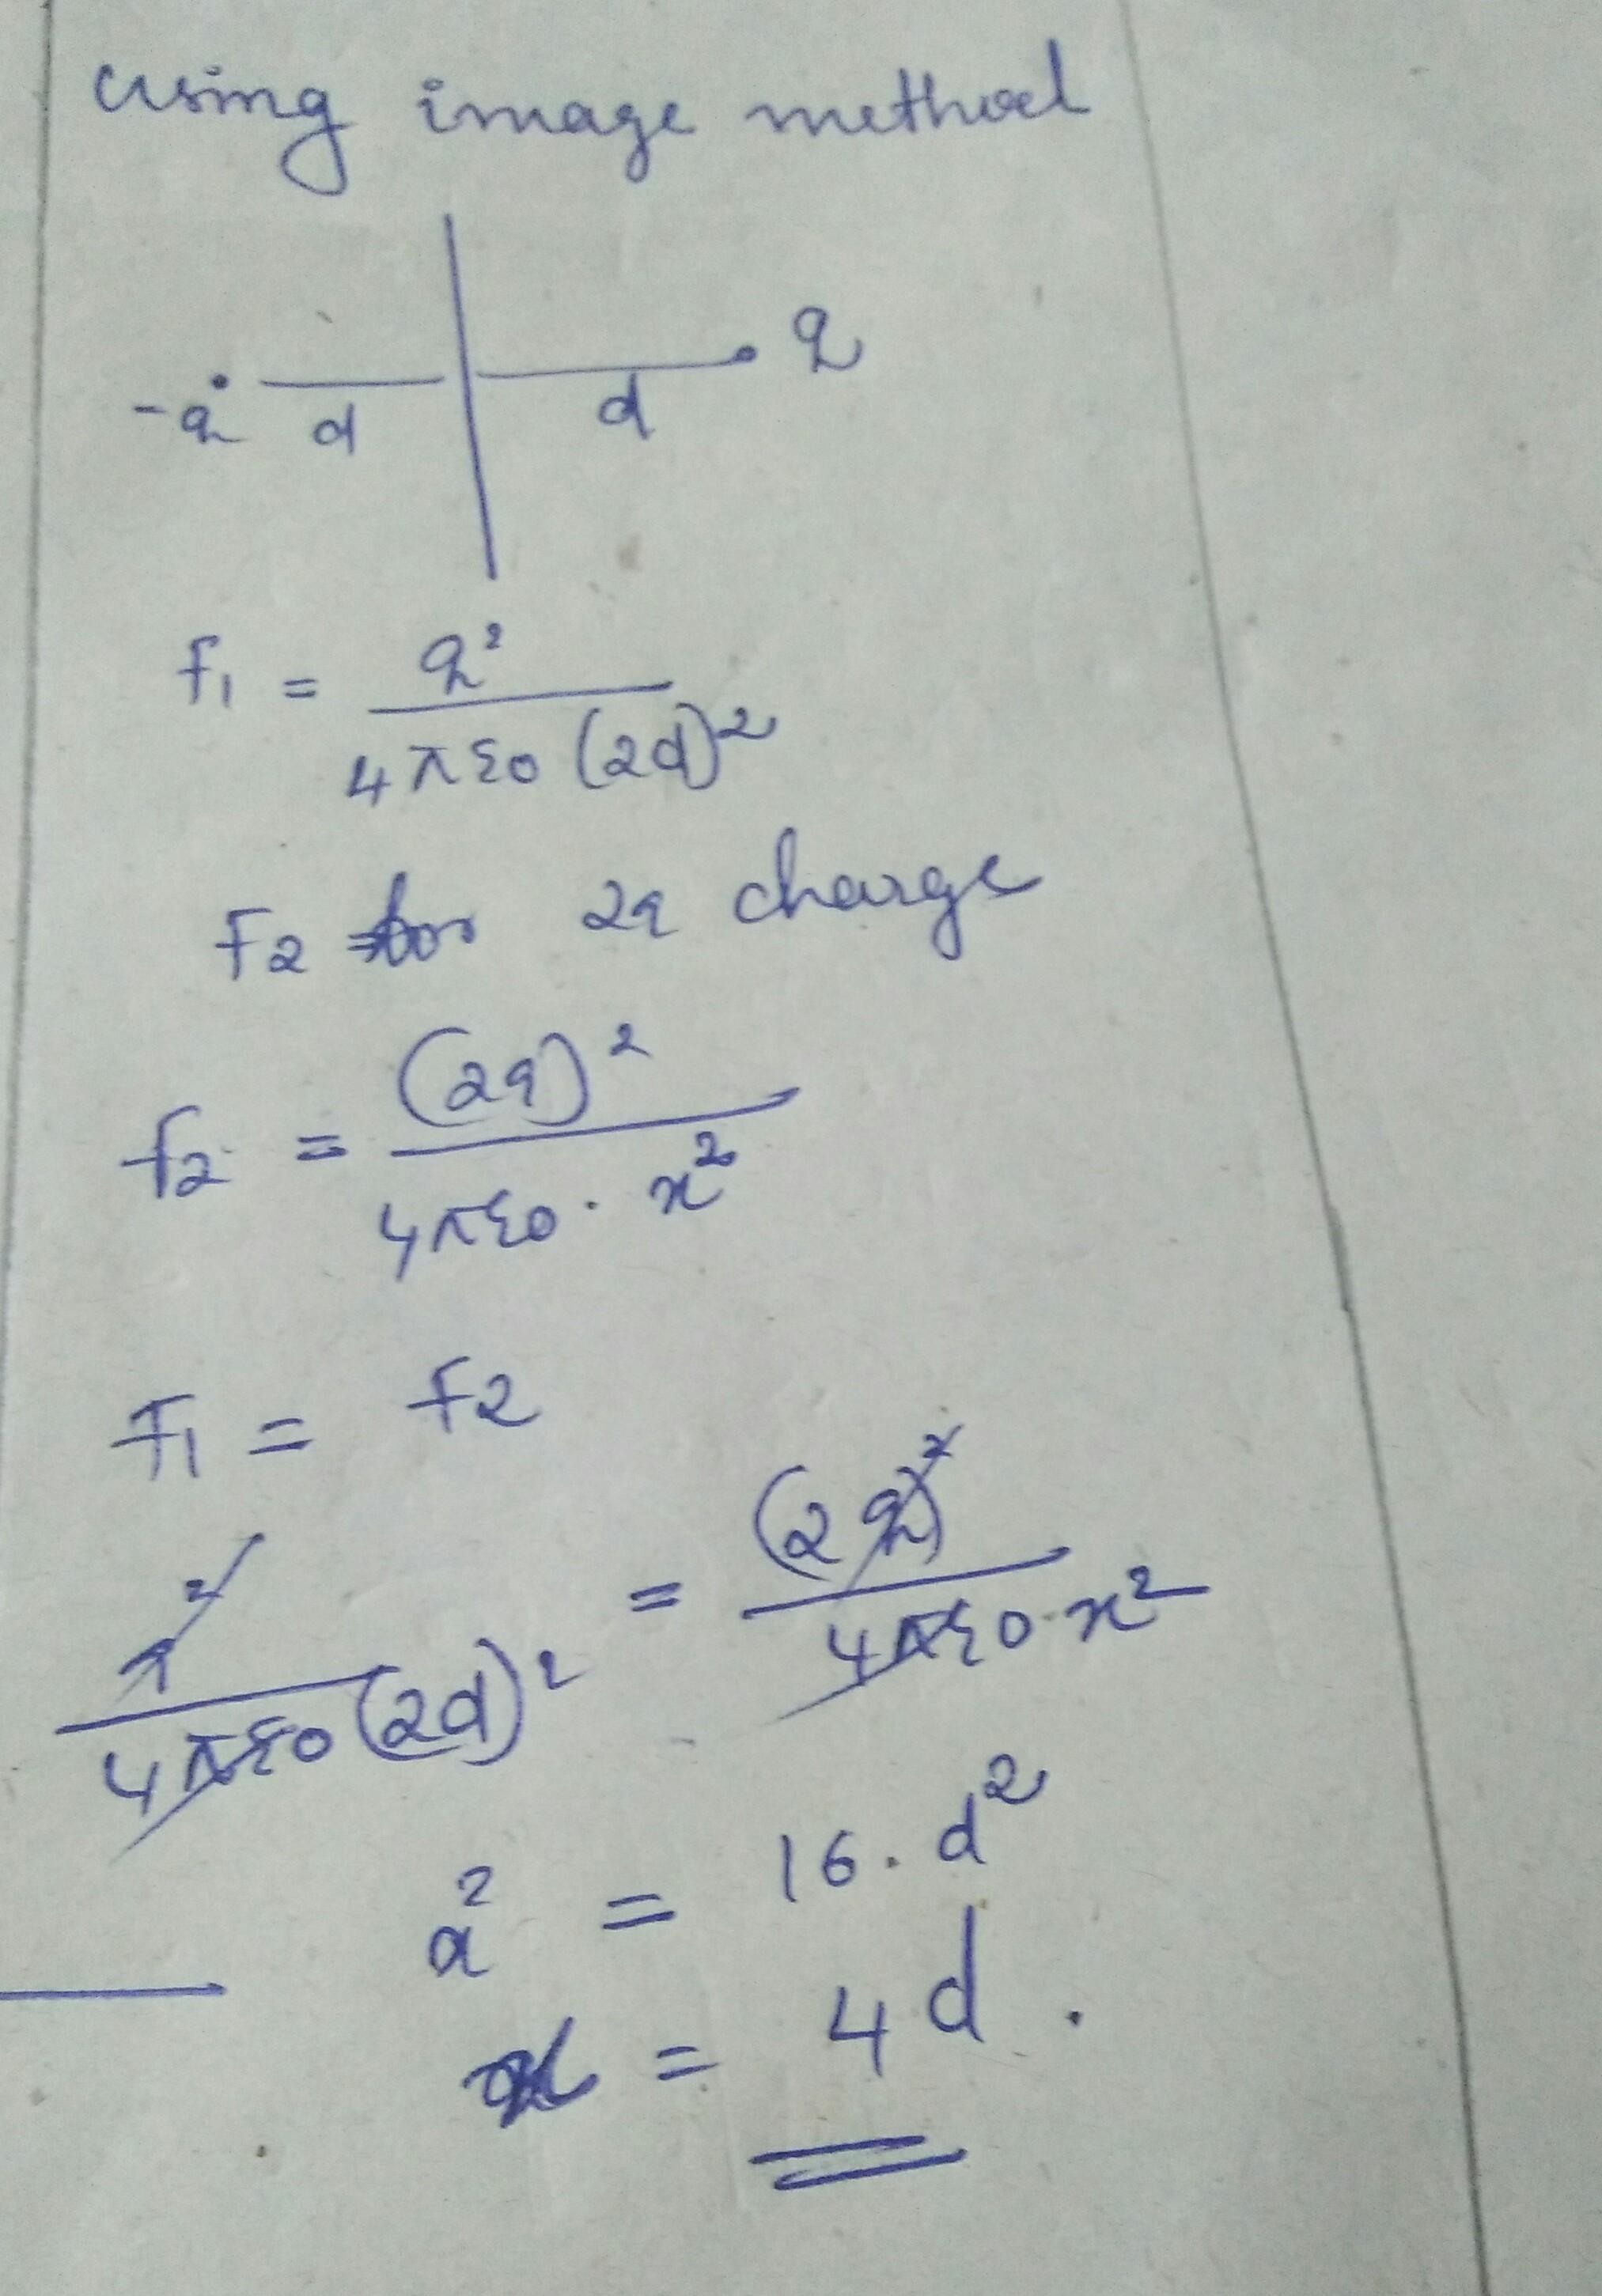 Using image method
-q d d q
F1 = q² / 4πε0 (2d)²
F2 for 2q charge
F2 = (2q)² / 4πε0 . x²
F1 = F2
q² / 4πε0 (2d)² = (2q)² / 4πε0 . x²
x² = 16 . d²
x = 4d .